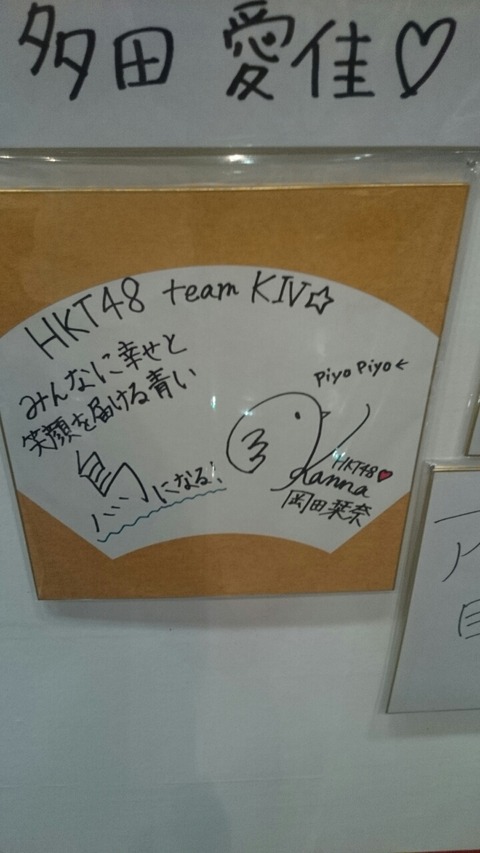 多田 愛佳♡
HKT48 team KIV☆
みんなに幸せと
笑顔を届ける青い
鳥になる!
Piyo Piyo←
HKT48♥
Kanna
岡田栞奈